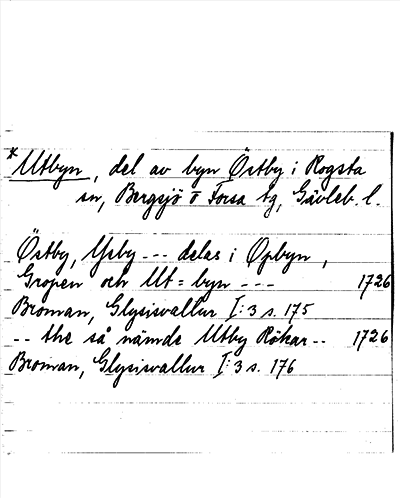 * Utbyn, del av byn Östby i Rogsta
sn, Bergsjö o Forsa tg, Gävleb. l.
Östby, Ysby --- delas i Opbyn,
Gropen och Ut=byn --- 1726
Broman, Glysisvallur I:3 s. 175
-- the så nämde Utby Rökar -- 1726
Broman, Glysisvallur I:3 s. 176